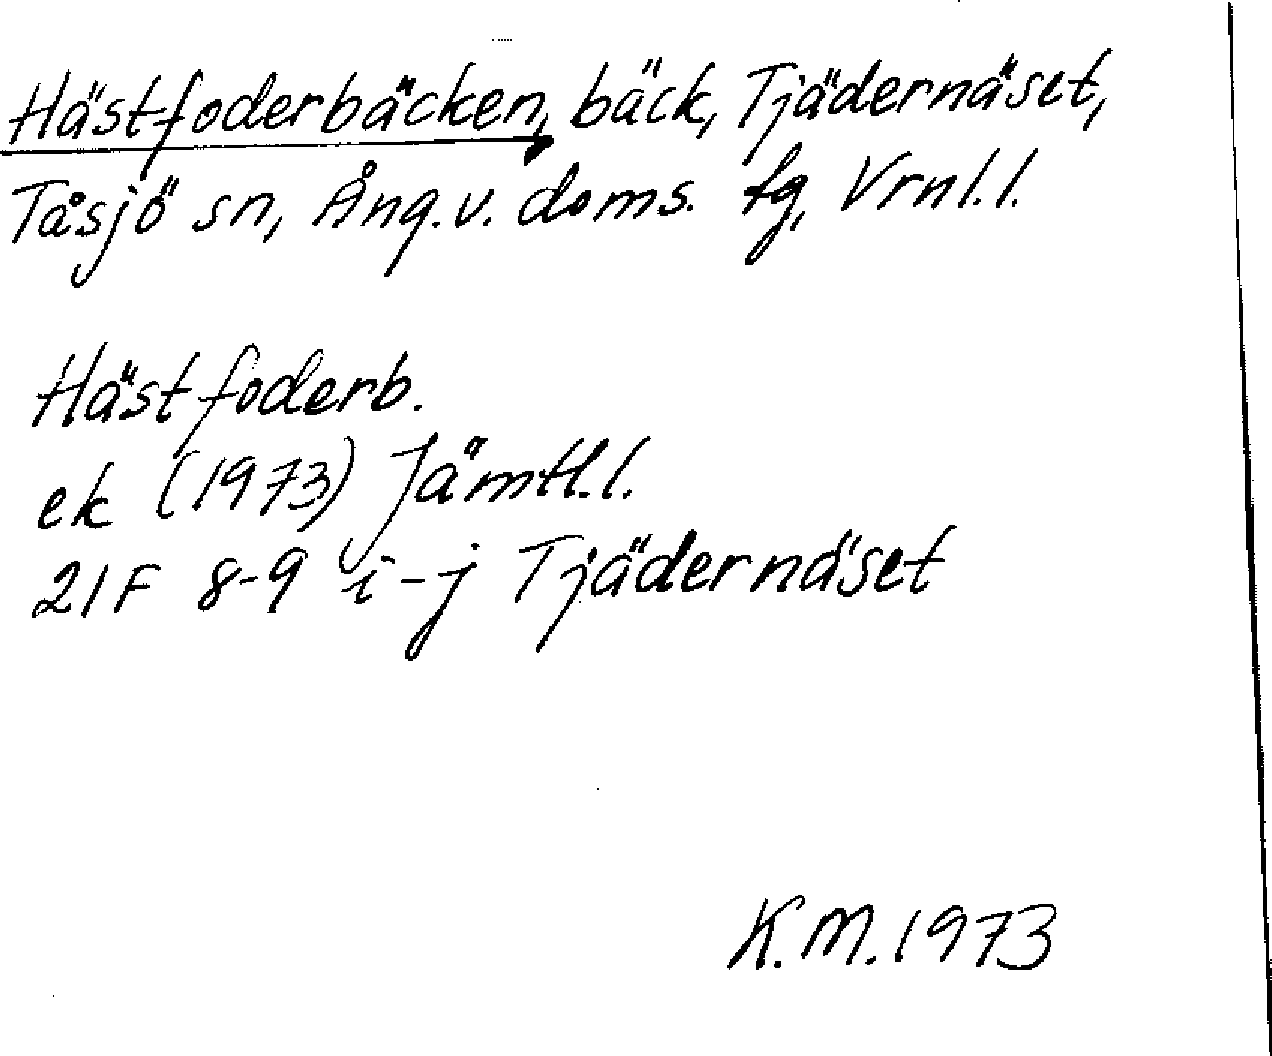 Hästfoderbäcken, bäck, Tjädernäset,
Tåsjö sn, Ång. v. doms. fg, Vrnl. l.
Hästfoderb.
ek (1973) Jämtl. l.
21F 8-9 i-j Tjädernäset
K.M. 1973